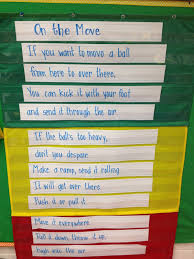 On the Move
If you want to move a ball
from here to over there,
You can kick it with your foot
and send it through the air.
If the ball's too heavy,
don't you despair
Make a ramp, send it rolling
It will get over there.
Push it or pull it
Move it everywhere.
Roll it down, throw it up,
high into the air.